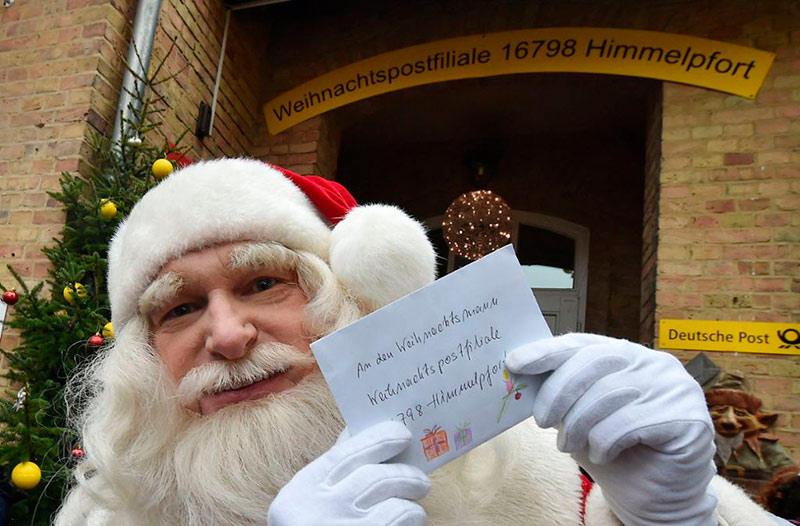 Weihnachtspostfiliale 16798 Himmelpfort
An den Weihnachtsmann
Weihnachtspostfiliale
798 Himmelpfort
Deutsche Post